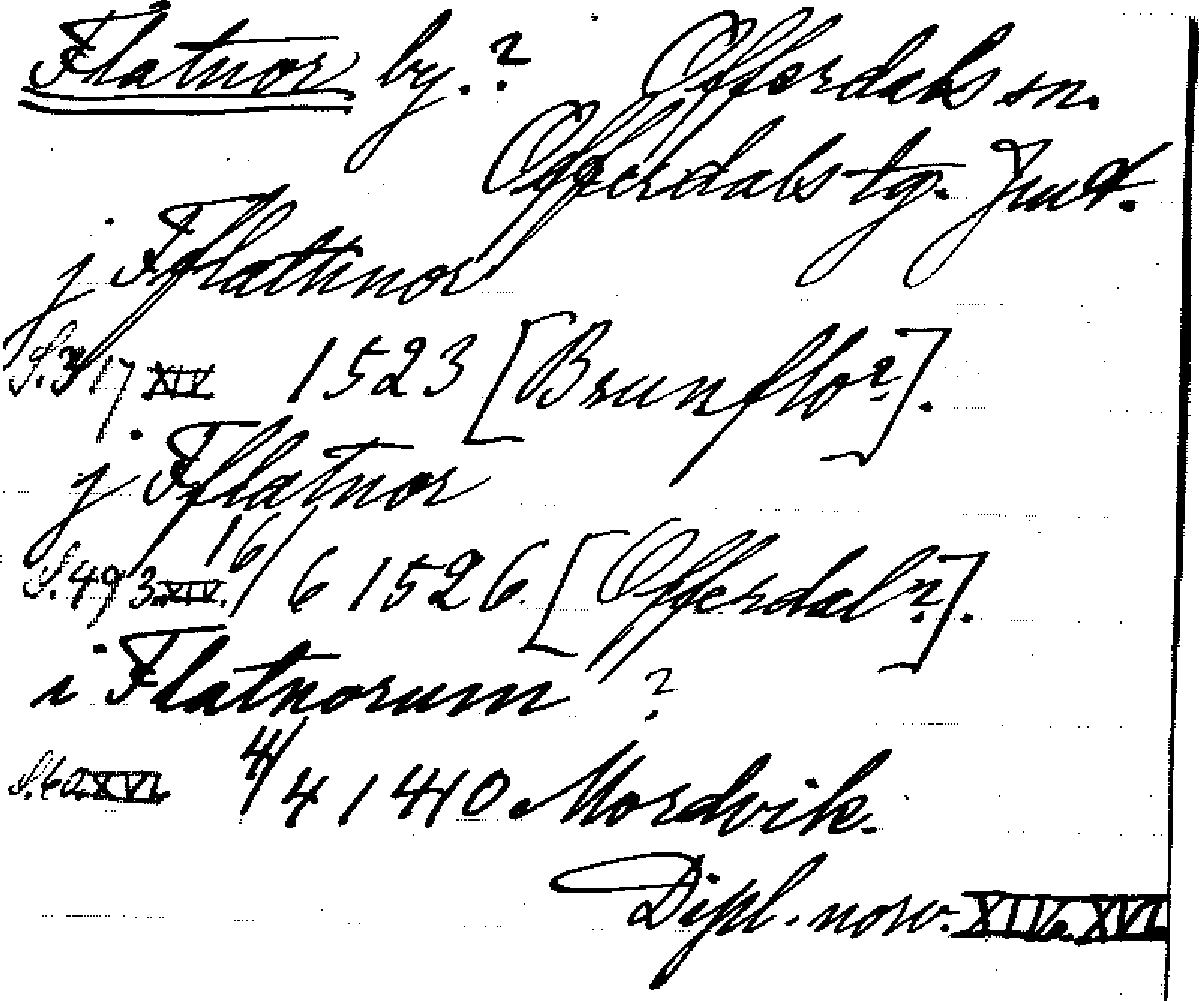 Flatnor by.? Offerdals sn.
Offerdals tg. Jmt.
j Fflattnor
S. 317. XIV 1523 [Brunflo?].
j Fflatnor
S. 493. XIV. 16/6 1526 [Offerdal?].
i Flatnorum ?
S. 60. XVI. 4/4 1440 Mordvik.
Dipl. norv. XIV o. XVI.